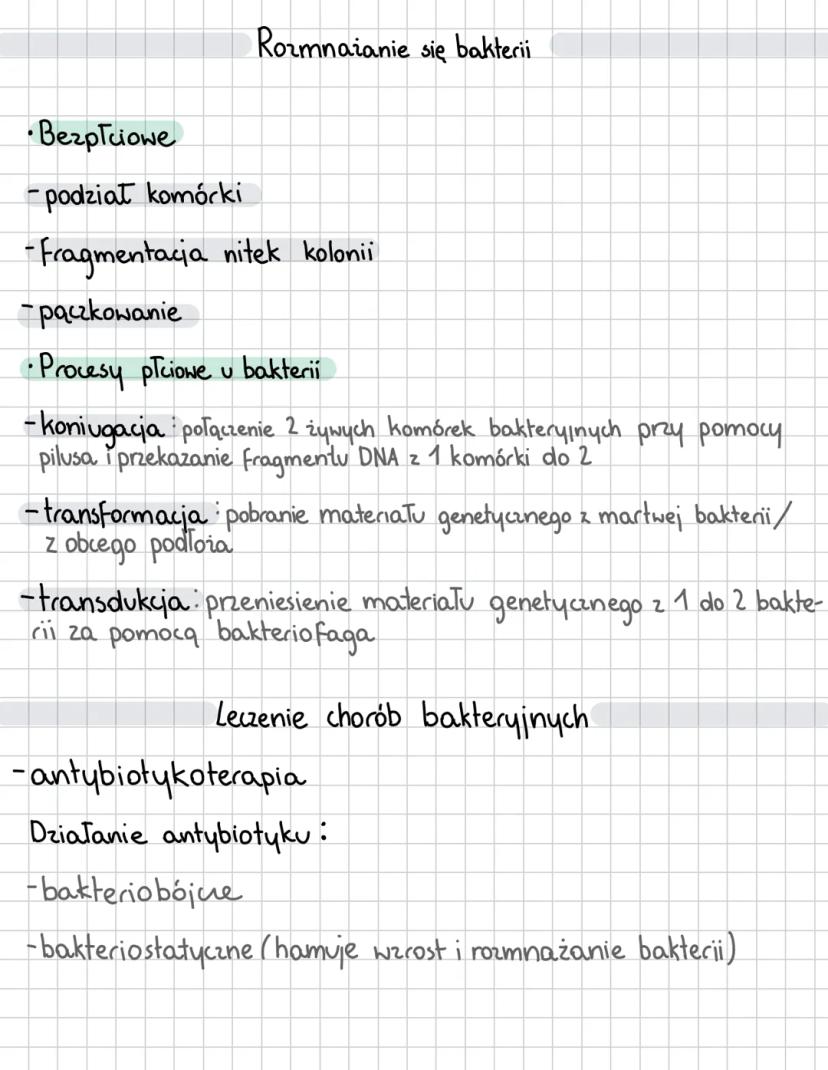 Rozmnażanie się bakterii
• Bezpłciowe
- podział komórki
- fragmentacja nitek kolonii
- pączkowanie
• Procesy płciowe u bakterii
- koniugacja: połączenie 2 żywych komórek bakteryjnych przy pomocy
pilusa i przekazanie fragmentu DNA z 1 komórki do 2
- transformacja: pobranie materiału genetycznego z martwej bakterii/
z obcego podłoża
- transdukcja: przeniesienie materiału genetycznego z 1 do 2 bakte-
rii za pomocą bakteriofaga
Leczenie chorób bakteryjnych
- antybiotykoterapia
Działanie antybiotyku:
- bakteriobójcze
- bakteriostatyczne (hamuje wzrost i rozmnażanie bakterii)